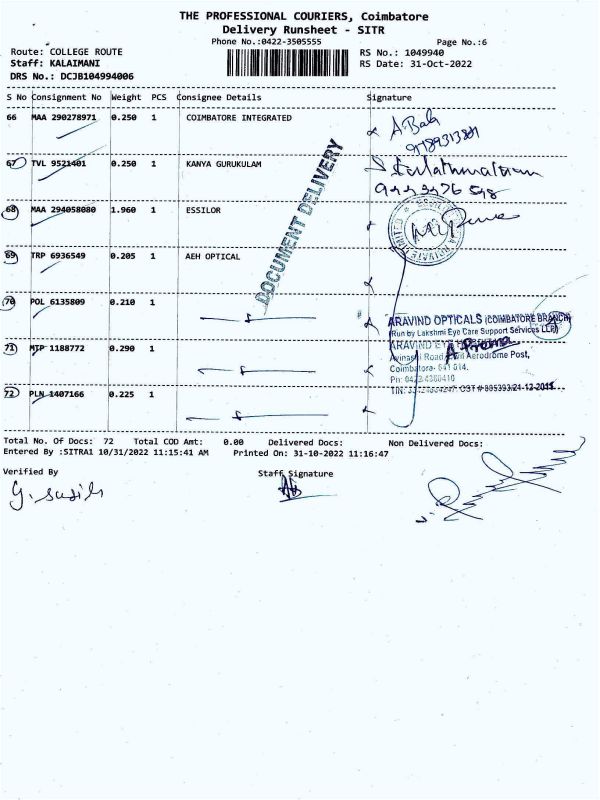 THE PROFESSIONAL COURIERS, Coimbatore
Delivery Runsheet - SITR
Phone No.:0422-3505555 Page No.:6
Route: COLLEGE ROUTE RS No.: 1049940
Staff: KALAIMANI RS Date: 31-Oct-2022
DRS No.: DCJB104994006
S No Consignment No Weight PCS Consignee Details Signature
66 MAA 290278971 0.250 1 COIMBATORE INTEGRATED
A. Bala
67 TVL 9521401 0.250 1 KANYA GURUKULAM
68 MAA 294058080 1.960 1 ESSILOR
69 TRP 6936549 0.205 1 AEH OPTICAL
DOCUMENT DELIVERY
70 POL 6135809 0.210 1
ARAVIND OPTICALS (COIMBATORE BRANCH)
(Run by Lakshmi Eye Care Support Services LLP)
71 MTP 1188772 0.290 1
ARAVIND EYE
A. Prema
Avinashi Road, Civil Aerodrome Post,
Coimbatore- 641 014.
Ph: 0422-4360410
72 PLN 1407166 0.225 1
Total No. Of Docs: 72 Total COD Amt: 0.00 Delivered Docs: Non Delivered Docs:
Entered By :SITRA1 10/31/2022 11:15:41 AM Printed On: 31-10-2022 11:16:47
Verified By Staff Signature